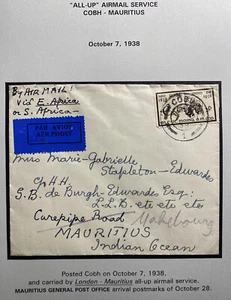 "ALL-UP" AIRMAIL SERVICE
COBH - MAURITIUS
October 7, 1938
By AIR MAIL!
via E. Africa
or S. Africa -
PAR AVION
AER PHOST
COBH
Miss Marie-Gabrielle
Stapleton-Edwardes
C/o H.H.
G.B. de Burgh-Edwardes Esq:
L.L.B. etc etc etc
Curepipe Road Mahebourg
MAURITIUS
Indian Ocean
Posted Cobh on October 7, 1938,
and carried by London - Mauritius all-up airmail service.
MAURITIUS GENERAL POST OFFICE arrival postmarks of October 28.